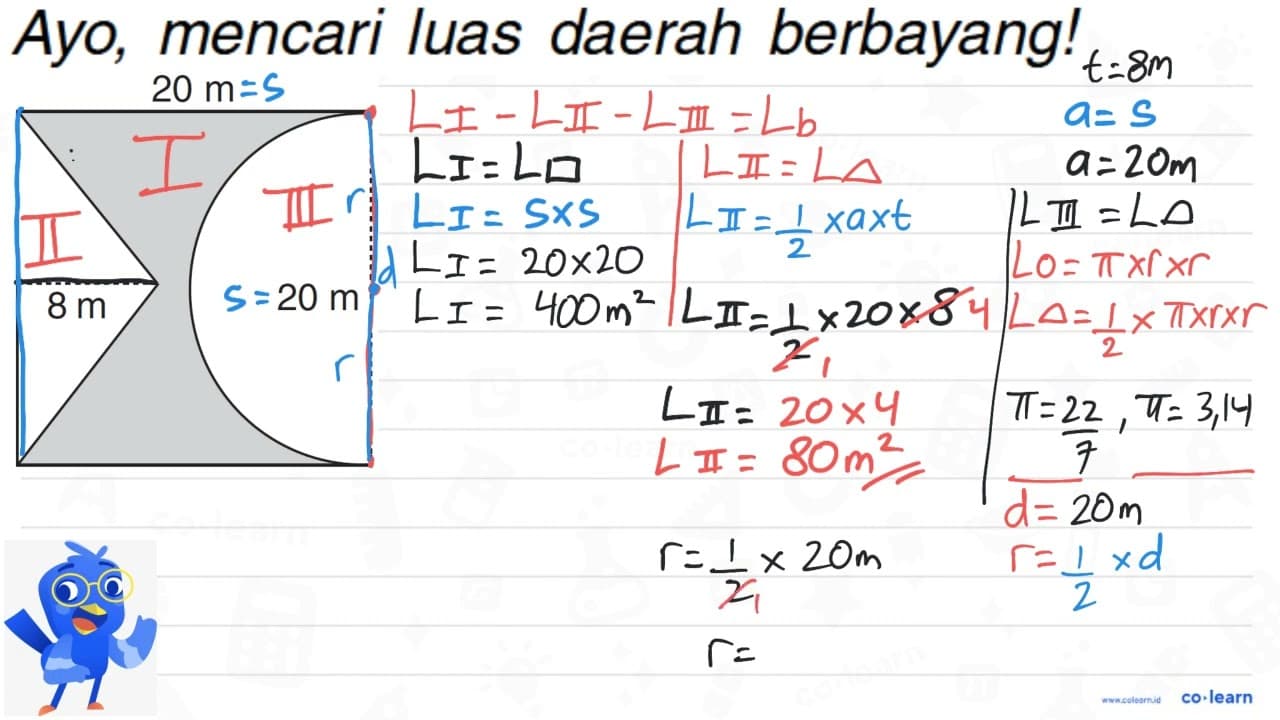 Ayo, mencari luas daerah berbayang!
20 m = s
I
II
III
r
8 m
s = 20 m
d
r
LI - LII - LIII = Lb
LI = L□
LI = s×s
LI = 20×20
LI = 400m²
LII = L△
LII = 1/2 ×a×t
LII = 1/2 ×20×8 4
1
LII = 20×4
LII = 80m²
r = 1/2 × 20m
1
r =
t=8m
a= s
a=20m
LIII = L⌓
LO = π×r×r
L⌓ = 1/2 × π×r×r
π = 22/7 , π = 3,14
d = 20m
r = 1/2 ×d
co·learn
www.colearn.id co·learn